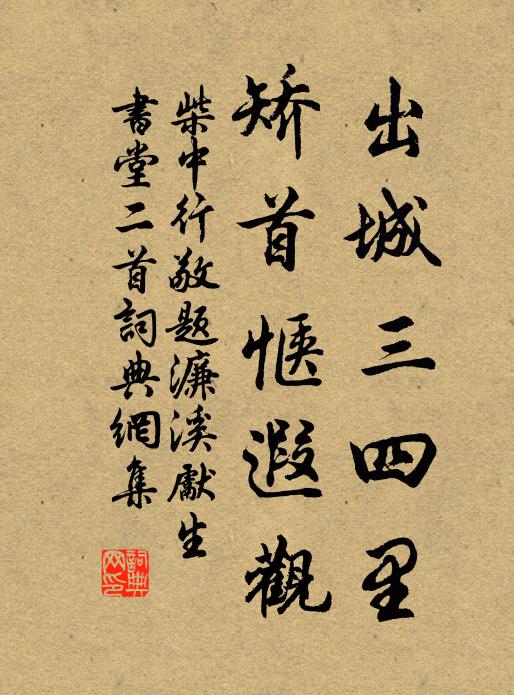 出城三四里
矫首惬遐觀
柴中行敬題濂溪獻生
書堂二首詞典網集
詞典网印